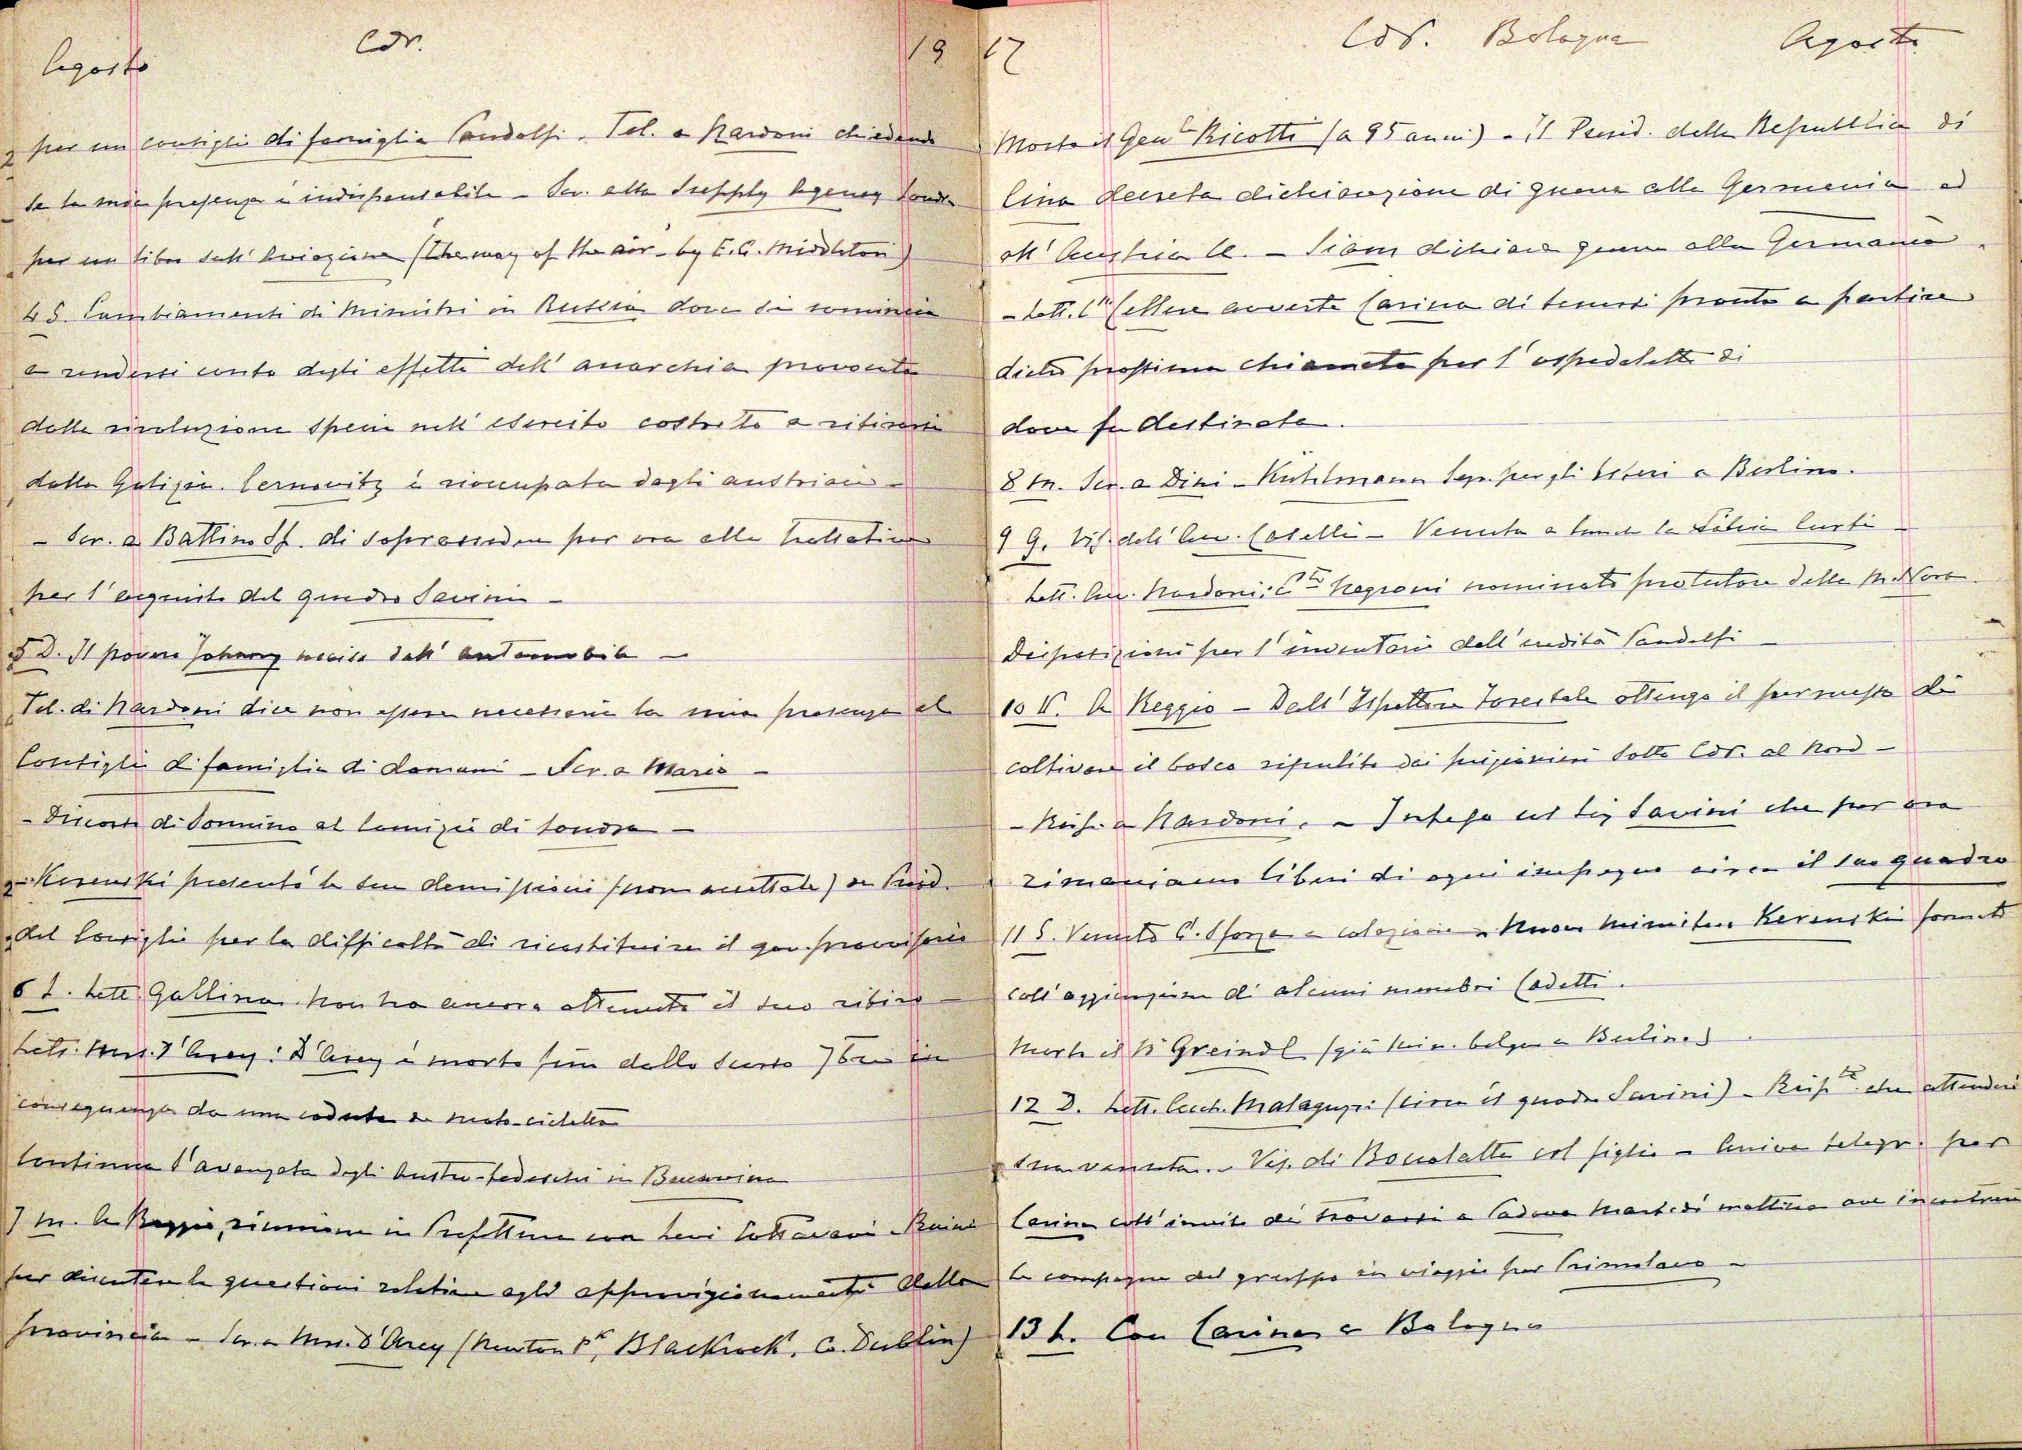 Agosto
Cdr.
19
per un consiglio di famiglia Pandolfi. Tel. a Nardoni chiedendo
se la mia presenza è indispensabile - Scr. alla Supply Agency Londra
per un libro sull'Aviazione (The way of the air - by E. C. Middleton)
4 S. Cambiamenti di Ministri in Russia dove si comincia
a rendersi conto degli effetti dell'anarchia provocata
dalla rivoluzione specie nell'esercito costretto a ritirarsi
dalla Galizia. Cernovitz è rioccupata dagli austriaci -
- Scr. a Battino Sf. di soprassedere per ora alla trattativa
per l'acquisto del quadro Savini -
5 D. Il povero Johnny ucciso dall'automobile -
Tel. di Nardoni dice non essere necessaria la mia presenza al
Consiglio di famiglia di domani - Scr. a Mario -
- Discorso di Sonnino al comizio di Londra -
- Kerenski presentò le sue demissioni (non accettate) da Presid.
del Consiglio per la difficoltà di ricostituire il gov. provvisorio
6 L. Lett. Gallina. Non ha ancora ottenuto il suo ritiro -
Lett. Mrs. D'Arcy: D'Arcy è morto fin dallo scorso 7bre in
conseguenza da una caduta da moto-cicletta
Continua l'avanzata degli Austro-tedeschi in Bucovina
7 M. A Reggio, riunione in Prefettura con Levi Ottavavi
per discutere le questioni relative agli approvvigionamenti della
provincia - Scr. a Mrs. D'Arcy (Newton Pk, Blackrock, Co. Dublin)
17
Cdr. Bologna
Agosto
Morto il Genle Ricotti (a 95 anni) - Il Presid. della Repubblica di
Cina decreta dichiarazione di guerra alla Germania ed
all'Austria U. - Siam dichiara guerra alla Germania.
- Lett. Cssa Cellere avverte Carina di tenersi pronta a partire
dietro prossima chiamata per l'ospedaletto di
dove fu destinata.
8 M. Scr. a Dini - Kühlmann Segr. per gli Esteri a Berlino.
9 G. Vis. dell'Avv. Caselli - Venuta a lunch la Silvia Curti -
Lett. Avv. Nardoni: Cte Negroni nominato protutore della M. Nora.
Disposizioni per l'inventario dell'eredità Pandolfi -
10 V. A Reggio - Dall'Ispettore Forestale ottengo il permesso di
coltivare il bosco ripulito dai prigionieri sotto Cdr. al Nord -
- Risp. a Nardoni. - Inteso col Sig Savini che per ora
rimaniamo liberi di ogni impegno circa il suo quadro
11 S. Venuto C. Sforza a colazione - Nuovo ministero Kerenski formato
coll'aggiunzione di alcuni membri Cadetti.
Morto il Bn Greindl (già Min. belga a Berlino)
12 D. Lett. Cecch. Malaguzzi (circa il quadro Savini) - Rispte che attenderò
sua venuta. - Vis. di Bouolatte col figlio - Arriva telegr. per
Carina coll'invito di trovarsi a Padova Martedì mattina ove incontrerà
le compagne del gruppo in viaggio per Primolano -
13 L. Con Carina a Bologna